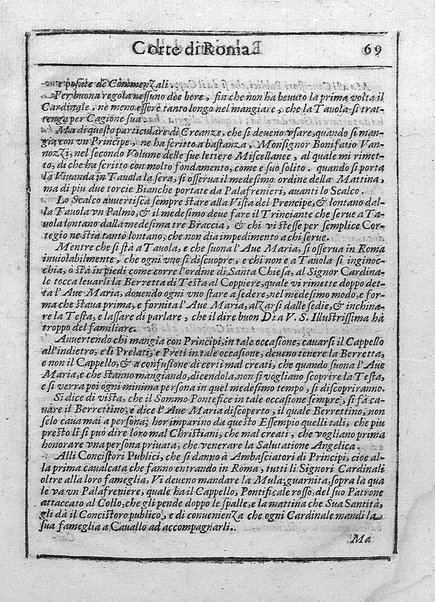 Corte di Roma. 69
posate de Conmenzali.
Per buona regola nessuno dee bere, sin che non ha beuuto la prima volta il
Cardinale, ne meno essere tanto longo nel mangiare, che la Tauola si trat-
tenga per Cagione sua.
Ma di questo particulare di Creanze, che si deueno vsare, quando si man
gia con vn Principe, ne ha scritto a bastanza, Monsignor Bonifatio Van-
nozzi, nel secondo Volume delle sue lettere Miscellanee, al quale mi rimet-
to, di che ha scritto con molto fondamento, come e suo solito. quando si porta
la Viuanda in Tauala la sera, si osserua il medesimo ordine della Mattina,
ma di piu due torcie Bianche portate da Palafrenieri, auanti lo Scalco.
Lo Scalco auuertisca sempre stare alla Vista del Prencipe, & lontano dal-
la Tauola vn Palmo, & il medesimo deue fare il Trinciante che serue a Ta
uola lontano dalla medesima tre Braccia, & chi vi stesse per semplice Cor-
tegio ne stia tanto lontano, che non dia impedimento a chi serue.
Mentre che si stà a Tauola, e che suona l'Aue Maria, si osserua in Roma
inuiolabilmente, che ogni vno si discuopre, e chi non e a Tauola si inginoc-
chia, o stà in piedi come corre l'ordine di Santa Chiesa, al Signor Cardina-
le tocca leuarli la Berretta di Testa al Coppiere, quale vi rimette doppo det-
ta l'Aue Maria, douendo ogni vno stare a sedere, nel medesimo modo, e for
ma che staua prima, e fornita l'Aue Maria, alzarsi dalle sedie, & inchina-
re la Testa, e lassare di parlare, che il dire buon Dì a V. S. Illustrissima hà
troppo del familiare.
Auuertendo chi mangia con Principi, in tale occasione, cauarsi il Cappello
all'indietro, e li Prelati, e Preti in tale occasione, deueno tenere la Berretta,
e non il Cappello, & a confusione di certi mal creati, che quando suona l'Aue
Maria, e che stanno mangiando, dicendola, non si vogliano scoprire la Testa,
e si verra poi ogni minima persona in quel medesimo tempo, si discopriranno.
Si dice di vista, che il Sommo Pontefice in tale occasione sempre, si fà ca-
uare il Berrettino, e dice l'Aue Maria discoperto, il quale Berrettino, non
selo caua mai a persona; hor imparino da questo Essempio quelli tali, che piu
presto li si può dire loro mal Christiani, che mal creati, che vogliano prima
honorare vna persona priuata, che venerare la Salutatione Angelica.
Alli Concistori Publici, che si danno à Ambasciatori di Principi, cioè al-
la prima caualcata che fanno entrando in Roma, tutti li Signori Cardinali
oltre alla loro fameglia, Vi deueno mandare la Mula; guarnita, sopra la qua
le va vn Palafreniere, quale ha il Cappello, Pontificale rosso, del suo Patrone
attaccato al Collo, che gli pende doppo le spalle, e la mattina che Sua Santità,
gli dà il Concistoro publico, e di conuenienza che ogni Cardinale mandi la
sua fameglia a Cauallo ad accompagnarli.
Ma